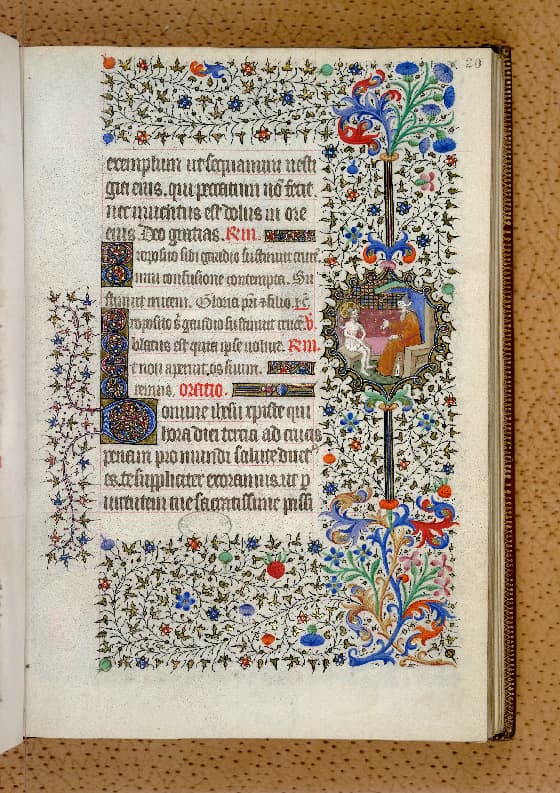 20
exemplum ut sequamini vesti
gia eius. qui peccatum nō fecit
nec inventus est dolus in ore
eius Deo gratias. Rm.
Proposito sibi gaudio sustinuit cruc̄.
confusione contempta. Su
stinuit crucem. Gloria pr̄i & filio.
Proposito s̄ gaudio sustinuit cruc̄. V̄.
Oblatus est quia ipse voluit. Rm.
Et non aperuit os suum.
Oremus. oratio.
Domine ihesu xp̄iste qui
hora diei tercia ad crucis
penam pro mundi salute duct
es. te suppliciter exoramus. ut p̄
virtutem tue sacratissime passi